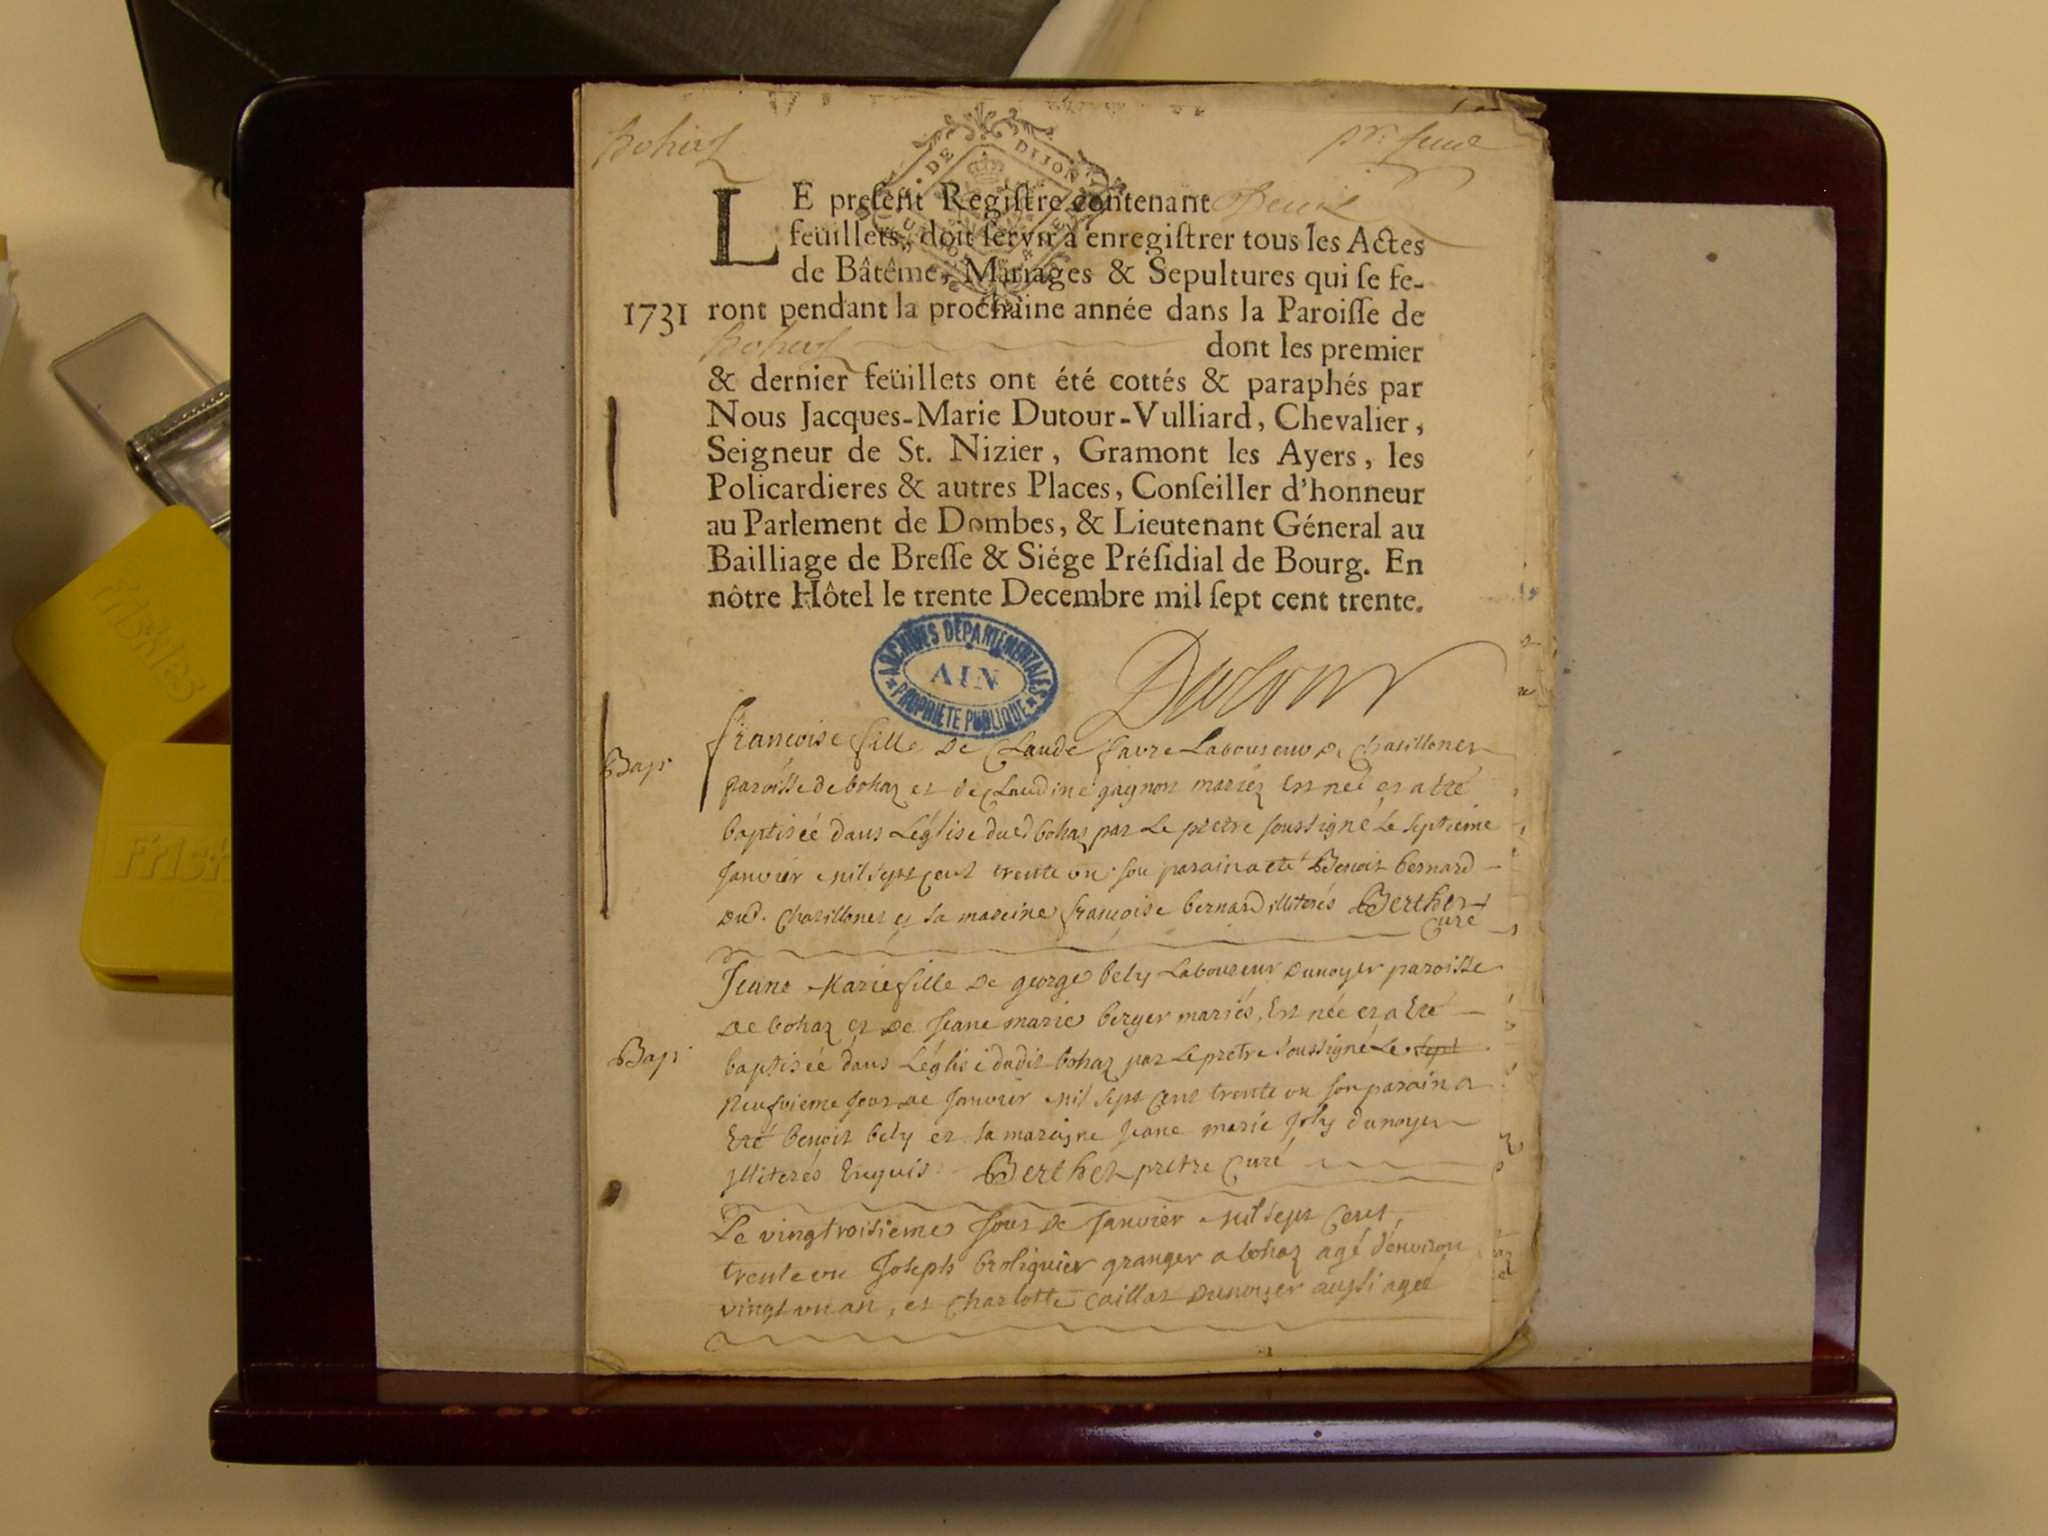 Bohaz
DE DIJON
LE preſent Regiſtre contenant
feüillets, doit ſervir à enregiſtrer tous les Actes
de Bâtême, Mariages & Sepultures qui ſe fe-
1731 ront pendant la prochaine année dans la Paroiſſe de
Bohaz dont les premier
& dernier feüillets ont été cottés & paraphés par
Nous Jacques-Marie Dutour-Vulliard, Chevalier,
Seigneur de St. Nizier, Gramont les Ayers, les
Policardieres & autres Places, Conſeiller d'honneur
au Parlement de Dombes, & Lieutenant Géneral au
Bailliage de Breſſe & Siége Préſidial de Bourg. En
nôtre Hôtel le trente Decembre mil ſept cent trente.
ARCHIVES DÉPARTEMENTALES
AIN
PROPRIÉTÉ PUBLIQUE
Dutour
françoise fille de Claude favre Laboureur de chatillonet
Bap. paroisse de bohaz et de Claudine gagnon mariez Est née et a Eté
baptisée dans L'église dud bohaz par Le pretre soussigné Le septieme
janvier mil sept cent trente un son parain a eté Benoit bernard
dud. chatillonet et sa mareine françoise bernard illiterés Berthet
Curé
Jeane Marie fille de george bely Laboureur dunoyer paroisse
de bohaz et de Jeane marie berger mariés, Est née et a Eté
Bap. baptisée dans L'églisé dudit bohaz par Le pretre soussigné Le sept
neufvieme jour de janvier mil sept cent trente un son parain a
Eté benoit bely et sa mareine jeane marie joly dunoyer
jlliterés Enquis Berthet pretre Curé
Le vingtroisieme jour de janvier mil sept cent
trente un Joseph broliquier granger a bohaz agé d'environ
vingt un an, et charlotte caillat dunoyer aussi agée
Friskies
Frisk